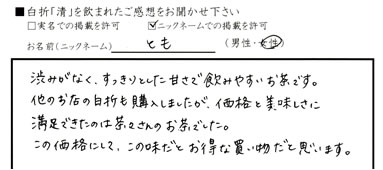 ■白折「清」を飲まれたご感想をお聞かせ下さい
□実名での掲載を許可 ☑ニックネームでの掲載を許可
お名前(ニックネーム) とも (男性・女性)
渋みがなく、すっきりとした甘さで飲みやすいお茶です。
他のお店の白折も購入しましたが、価格と美味しさに
満足できたのは茶々さんのお茶でした。
この価格にして、この味だとお得な買い物だと思います。